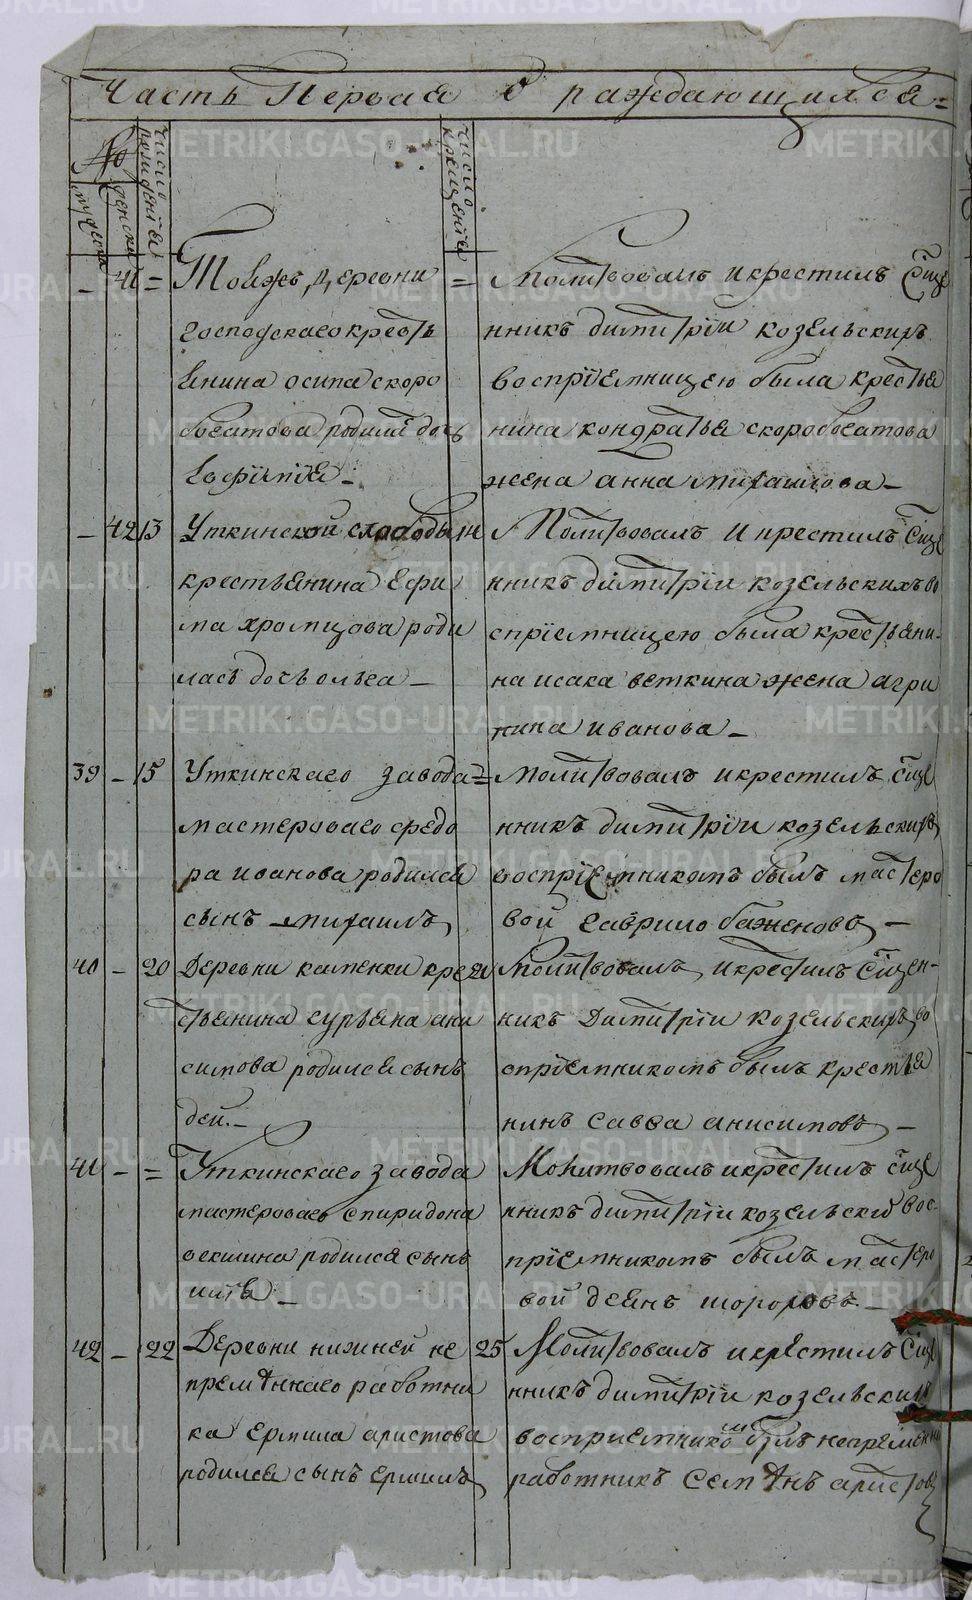 Часть Первая О раждающихся
№
мужеска
женска
число рождентя
число крещентя
– 41 =
Тойжъ деревни
господскаго кресть
янина осипа скоро
богатова родилась дочь
Евфимiя –
=
Молитвовалъ и крестилъ Свяще
нникъ димитрiи козельскихъ
воспрiемницею была крестья
нина кондратья скоробогатова
жена анна михаилова –
– 42 13
Уткинской слободы
крестьянина Ефи
ма хромцова роди
лась дочь ольга –
14
Молитвовалъ и крестилъ Свяще
нникъ димитрiи козельскихъ во
спрiемницею была крестьяни-
на исака веткина жена агри
пина иванова –
39 – 15
Уткинскаго завода
мастероваго федо
ра иванова родился
сынъ михаилъ
=
Молитвовалъ и крестилъ Свяще
нникъ димитрiи козельскихъ
воспрiемникомъ былъ мастеро
вой гаврило баженовъ –
40 – 20
Деревни каменки кре
стьянина гурьяна ани
симова родился сынъ
дей. –
21
Молитвовалъ и крестилъ Священ-
никъ Димитрiи козельскихъ во
спрiемникомъ былъ крестья
нинъ савва анисимовъ –
41 – =
Уткинскаго завода
мастероваго спиридона
векшина родился сынъ
–
Молитвовалъ и крестилъ Свяще
нникъ димитрiи козельскiй вос-
прiемникомъ былъ мастеро
вой –
42 – 22
Деревни нижней не
премѣннаго работни
ка ермила аристова
родился сынъ ермилъ
25
Молитвовалъ и крестилъ Свяще
нникъ димитрiи козельскихъ
восприемникомъ былъ непремѣнно
работникъ семѣнъ аристовъ
METRIKI.GASO-URAL.RU